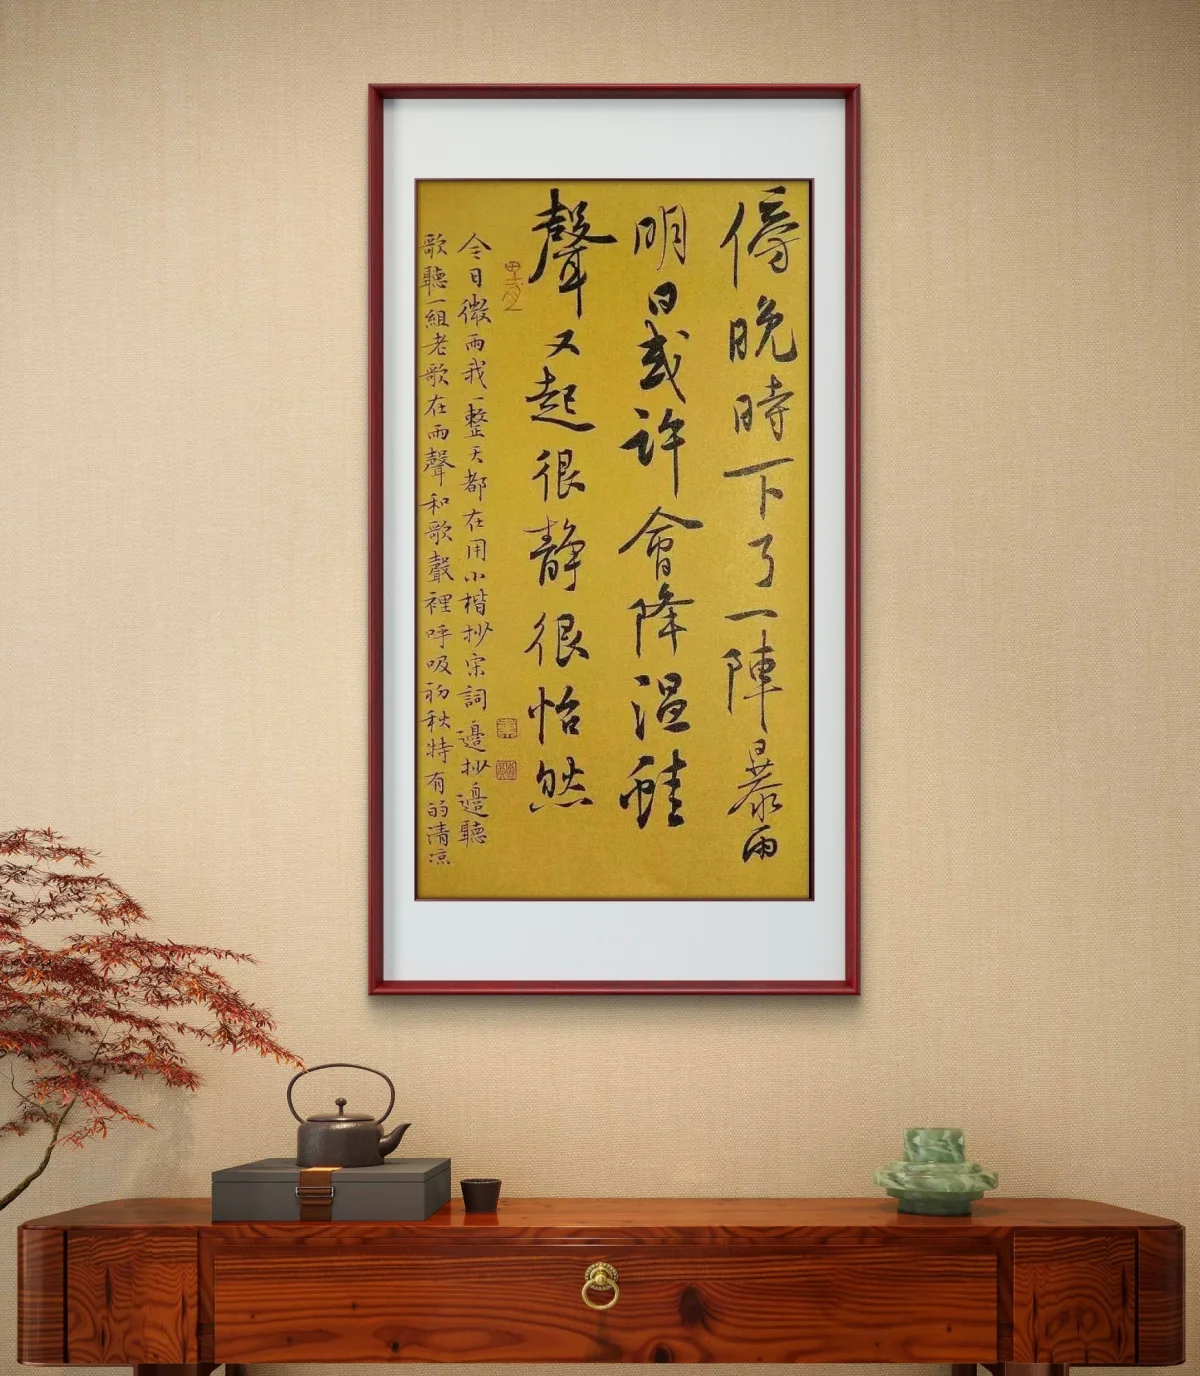 傍晚時下了一陣暴雨
明日或許會降溫蛙
聲又起很靜很怡然
今日微雨我一整天都在用小楷抄宋詞邊抄邊聽
歌聽一組老歌在雨聲和歌聲裡呼吸初秋特有的清涼